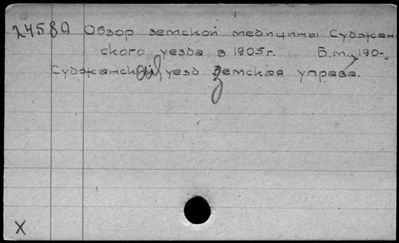 24580 Обзор земской медицины Суджан-
ского уезда в 1905 г. Б.м., 190-.
Суджанский уезд. Земская управа.
X